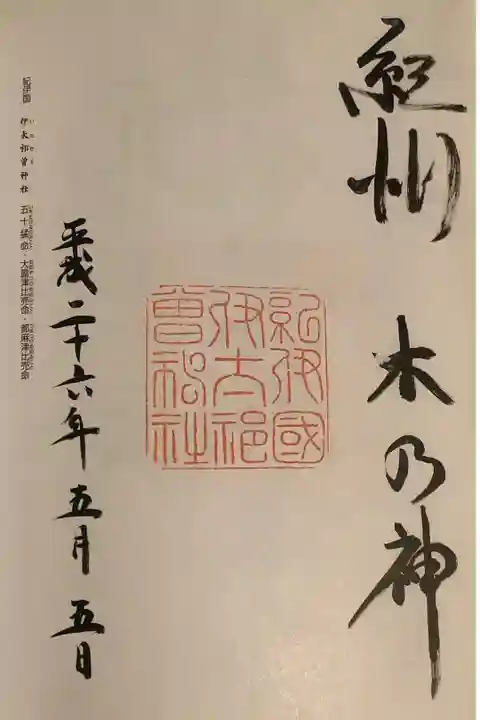 紀州 木乃神
紀伊國
伊太祁
曽神社
平成二十六年五月五日
紀伊国 伊太祁曽神社 五十猛命・大屋津比売命・都麻津比売命